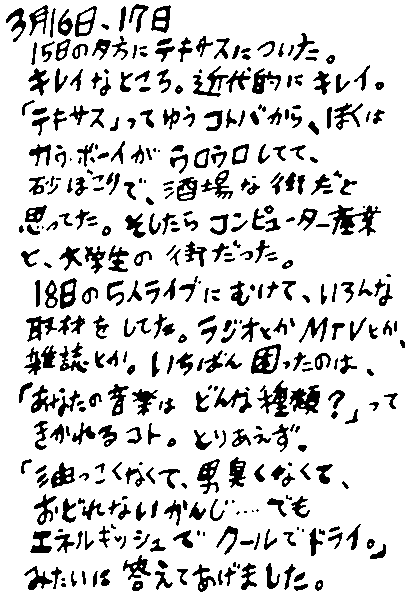 3月16日、17日
15日の夕方にテキサスについた。
キレイなところ。近代的にキレイ。
「テキサス」ってゆうコトバから、ぼくは
カウボーイがウロウロしてて、
砂ぼこりで、酒場な街だと
思ってた。そしたらコンピューター産業
と、大学生の街だった。
18日の5人ライブにむけて、いろんな
取材をしてた。ラジオとかMTVとか、
雑誌とか。いちばん困ったのは、
「あなたの音楽はどんな種類？」って
きかれるコト。とりあえず。
「油っこくなくて、男臭くなくて、
おどれないかんじ……でも
エネルギッシュでクールでドライ。」
みたいは答えてあげました。